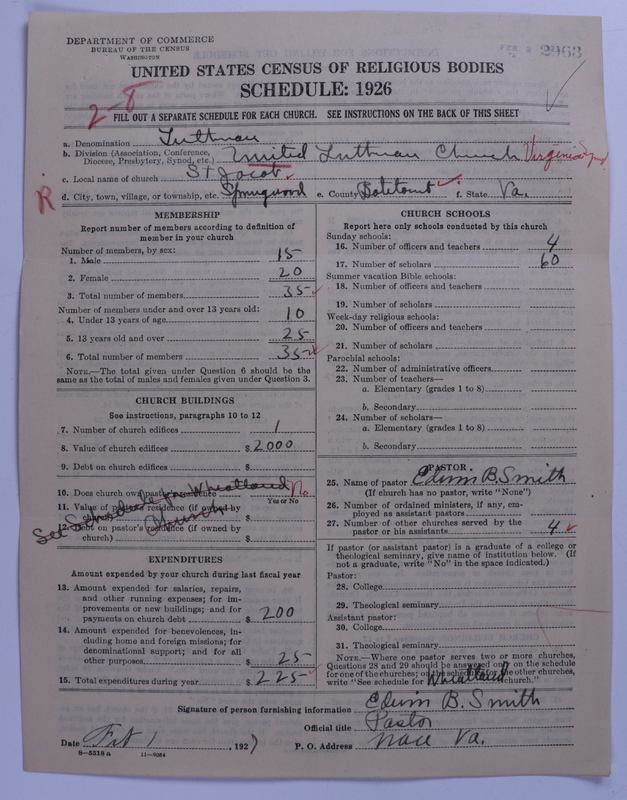 DEPARTMENT OF COMMERCE
BUREAU OF THE CENSUS
WASHINGTON
2963
UNITED STATES CENSUS OF RELIGIOUS BODIES
SCHEDULE: 1926
2-8
FILL OUT A SEPARATE SCHEDULE FOR EACH CHURCH. SEE INSTRUCTIONS ON THE BACK OF THIS SHEET
a. Denomination Luthran
b. Division (Association, Conference, Diocese, Presbytery, Synod, etc.) United Luthran Church Virginia Synod
c. Local name of church St Jacob
R
d. City, town, village, or township, etc. Springwood e. County Botetourt f. State Va.
MEMBERSHIP
Report number of members according to definition of
member in your church
Number of members, by sex:
1. Male 15
2. Female 20
3. Total number of members 35
Number of members under and over 13 years old:
4. Under 13 years of age 10
5. 13 years old and over 25
6. Total number of members 35
NOTE.—The total given under Question 6 should be the
same as the total of males and females given under Question 3.
CHURCH BUILDINGS
See instructions, paragraphs 10 to 12
7. Number of church edifices 1
8. Value of church edifices $ 2000
9. Debt on church edifices $
10. Does church own pastor's residence No
Yes or No
11. Value of pastor's residence (if owned by
church) $
12. Debt on pastor's residence (if owned by
church) $
See Schedule for Wheatland
Church
EXPENDITURES
Amount expended by your church during last fiscal year
13. Amount expended for salaries, repairs,
and other running expenses; for im-
provements or new buildings; and for
payments on church debt $ 200
14. Amount expended for benevolences, in-
cluding home and foreign missions; for
denominational support; and for all
other purposes $ 25
15. Total expenditures during year $ 225
CHURCH SCHOOLS
Report here only schools conducted by this church
Sunday schools:
16. Number of officers and teachers 4
17. Number of scholars 60
Summer vacation Bible schools:
18. Number of officers and teachers
19. Number of scholars
Week-day religious schools:
20. Number of officers and teachers
21. Number of scholars
Parochial schools:
22. Number of administrative officers
23. Number of teachers—
a. Elementary (grades 1 to 8)
b. Secondary
24. Number of scholars—
a. Elementary (grades 1 to 8)
b. Secondary
PASTOR
25. Name of pastor Edwin B. Smith
(If church has no pastor, write "None")
26. Number of ordained ministers, if any, em-
ployed as assistant pastors
27. Number of other churches served by the
pastor or his assistants 4
If pastor (or assistant pastor) is a graduate of a college or
theological seminary, give name of institution below. (If
not a graduate, write "No" in the space indicated.)
Pastor:
28. College
29. Theological seminary
Assistant pastor:
30. College
31. Theological seminary
NOTE.—Where one pastor serves two or more churches,
Questions 28 and 29 should be answered only on the schedule
for one of the churches; on the schedules for the other churches,
write "See schedule for Wheatland church."
Signature of person furnishing information Edwin B. Smith
Official title Pastor
Date Feb 1, 1927 P. O. Address Nace Va.
8—5518 a 11—9084